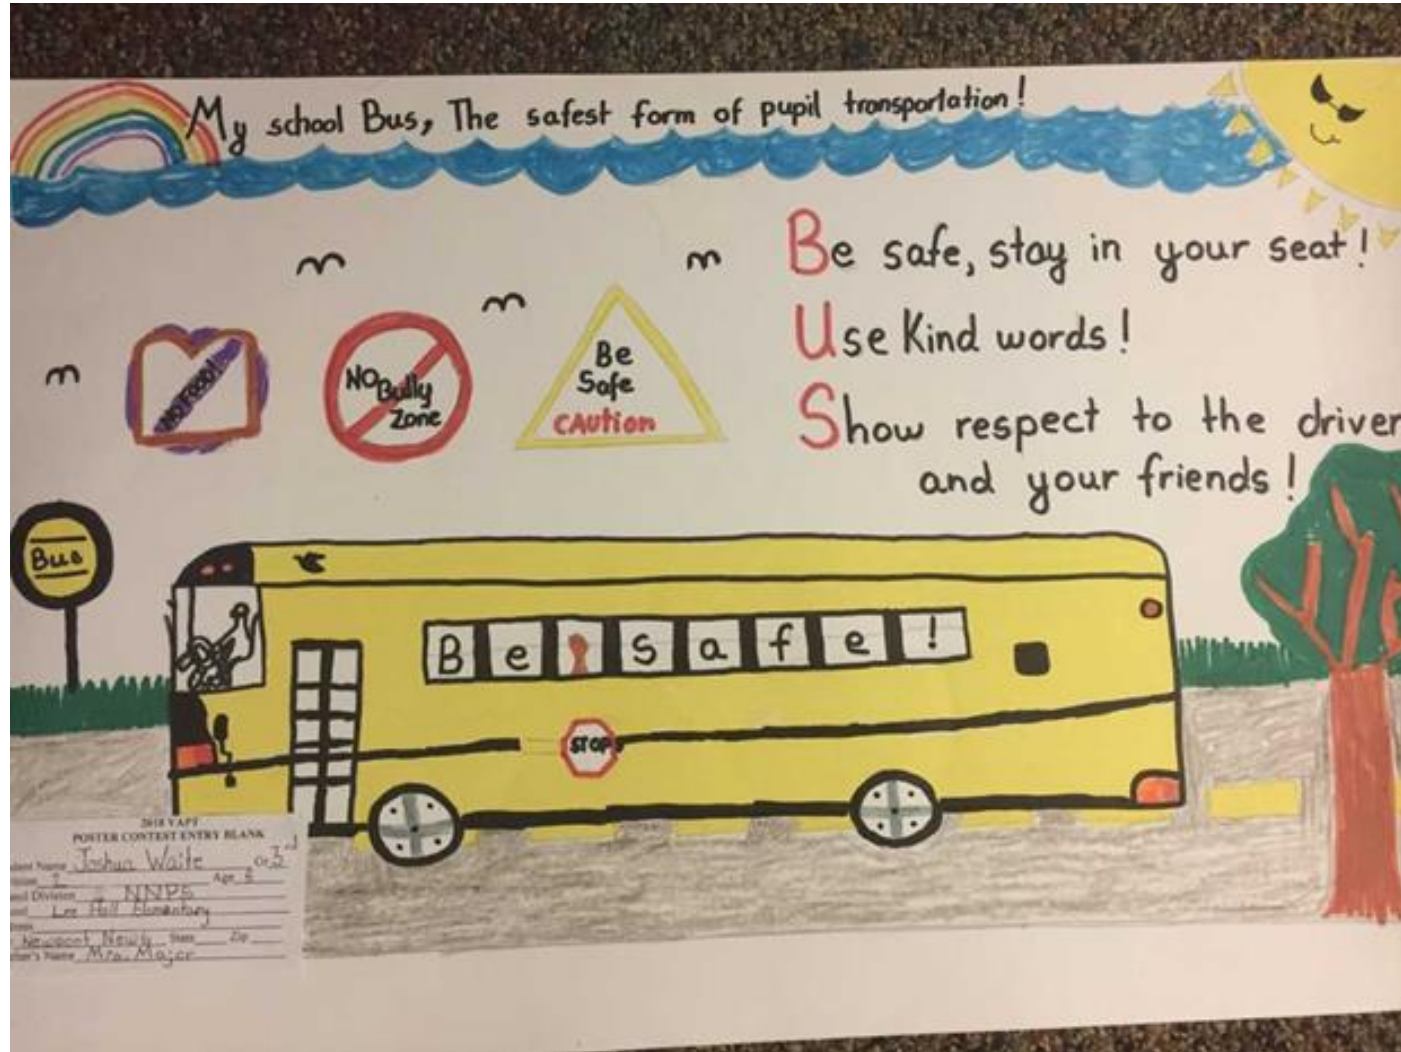 My school Bus, The safest form of pupil transportation!
Be safe, stay in your seat!
Use Kind words!
Show respect to the driver
and your friends!
NO FOOD!
NO Bully
Zone
Be
Safe
CAUTION
Bus
Be safe!
STOP
2018 VAPT
POSTER CONTEST ENTRY BLANK
Name Joshua Waite Gr 3rd
Age 8
Division NNPS
Lee Hall Elementary
Newport News State Zip
Name Mrs. Major